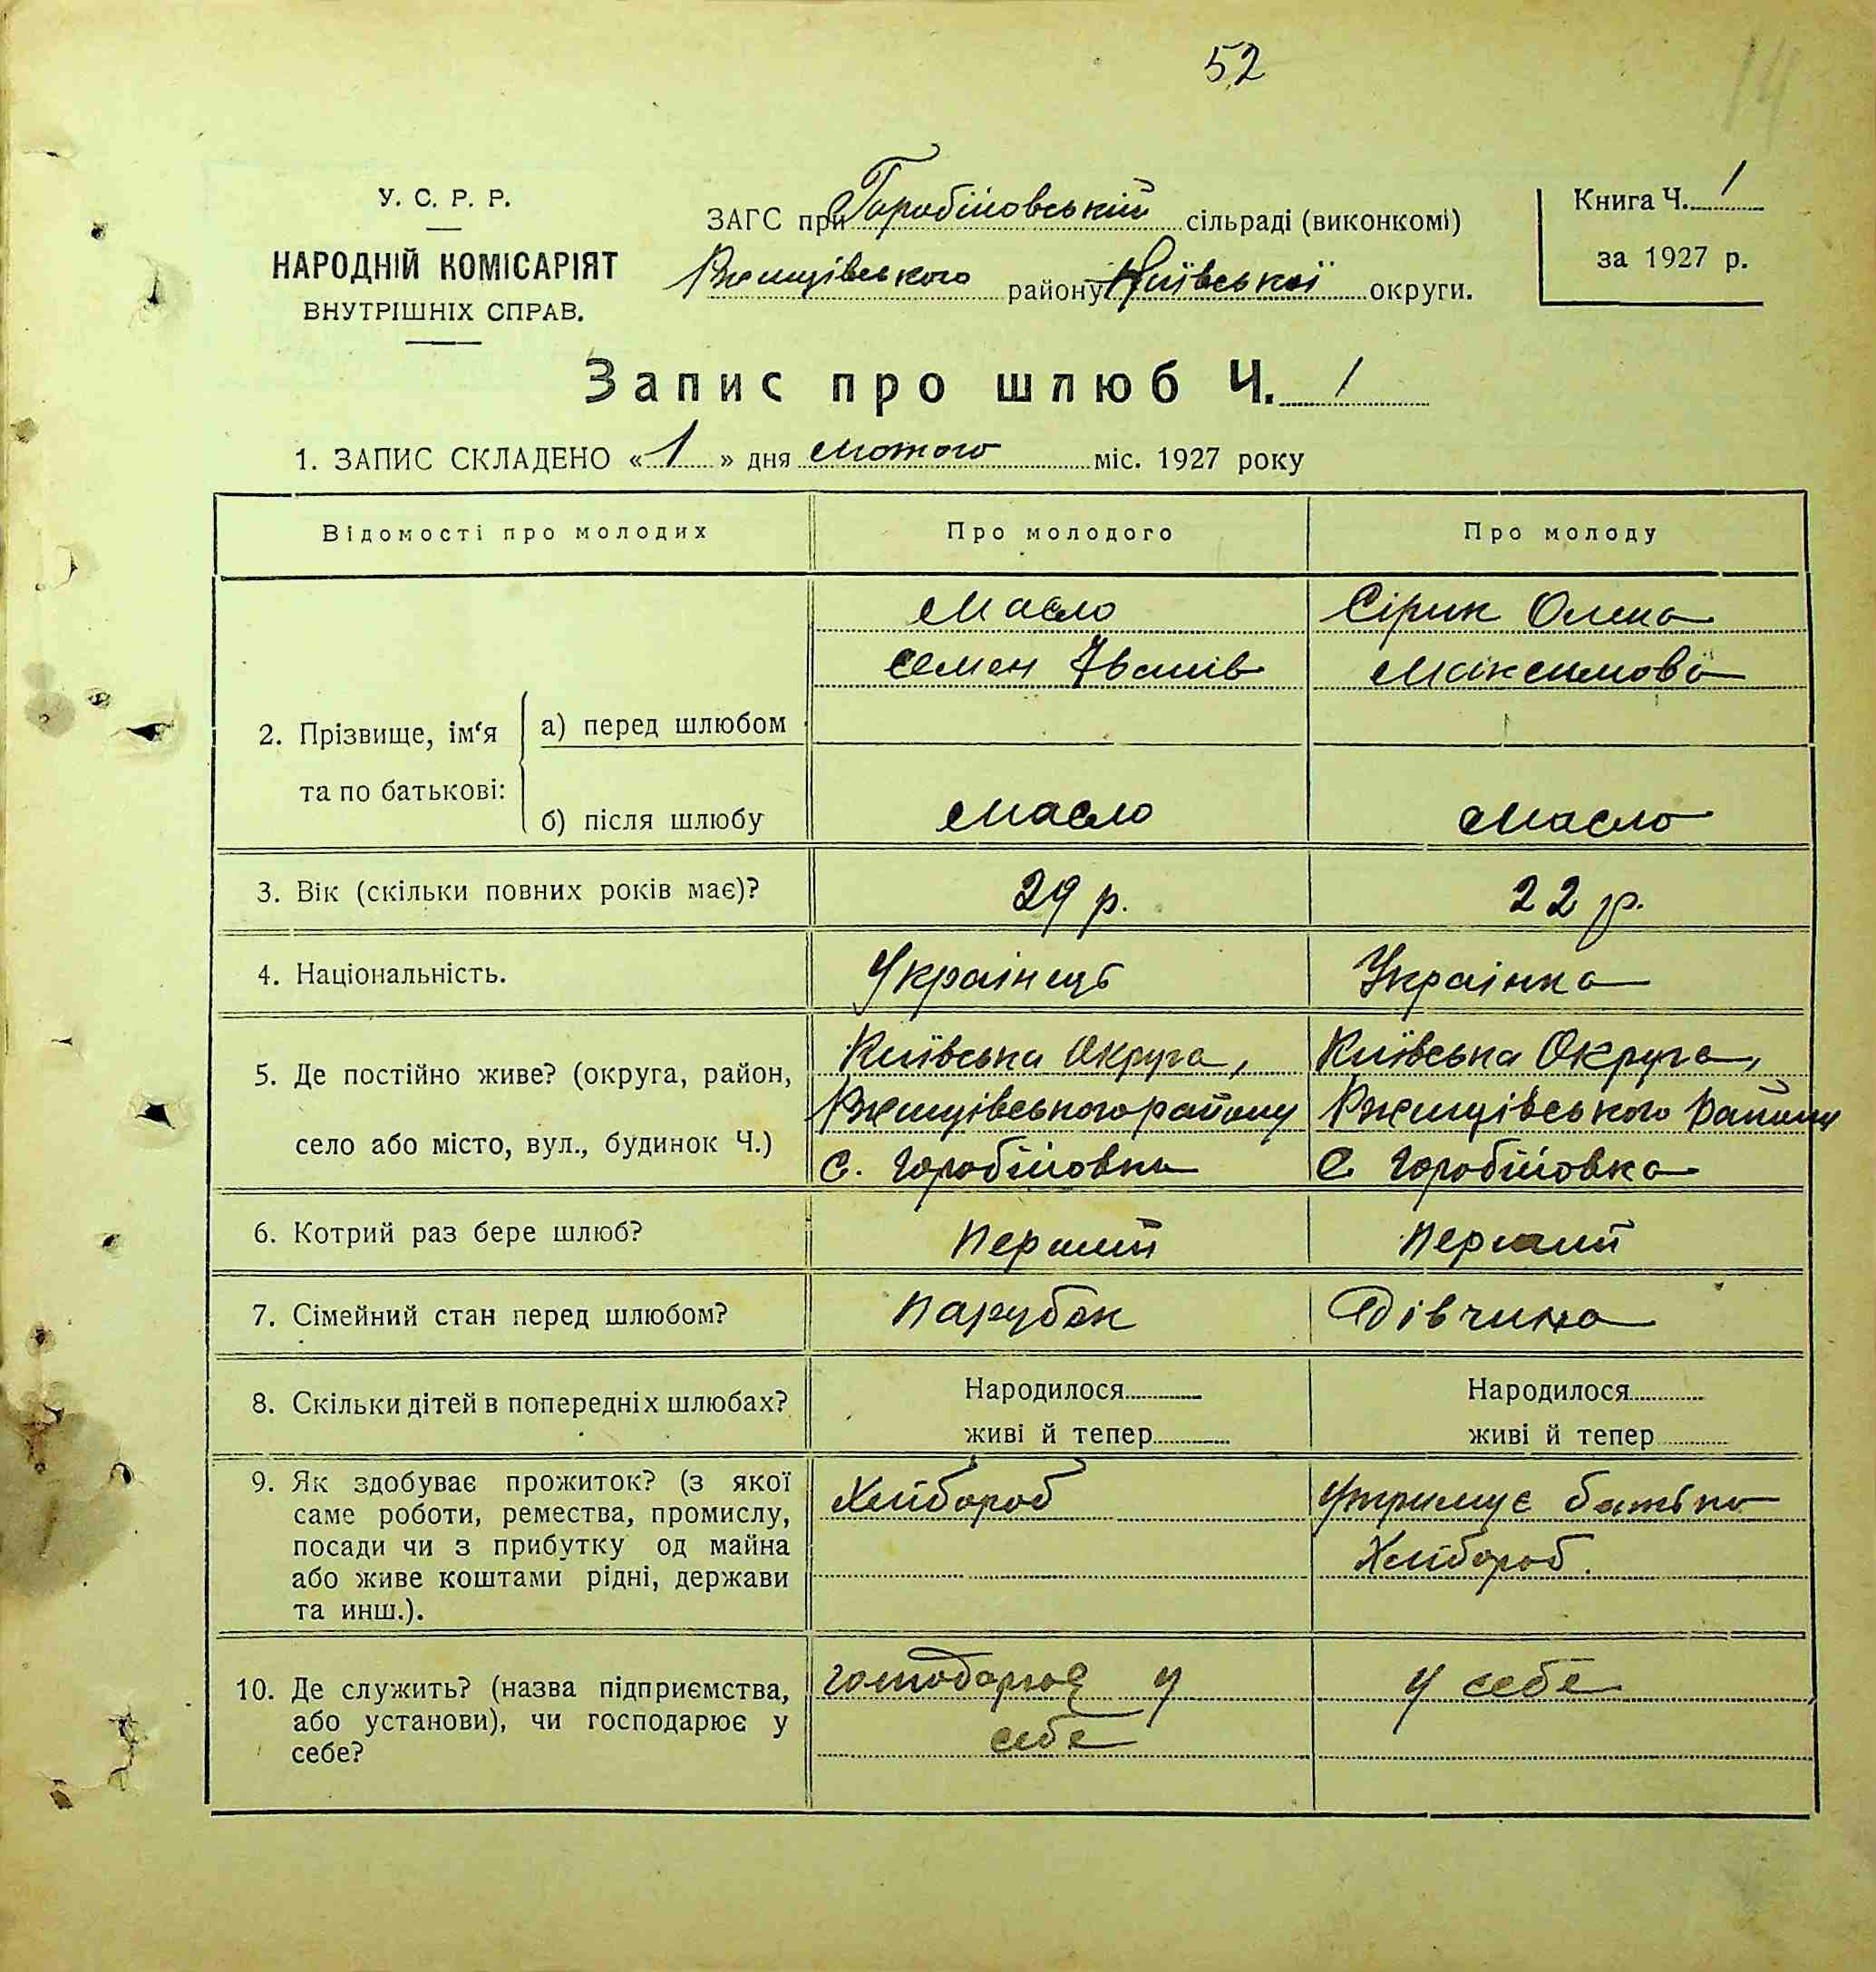 52
14
У. С. Р. Р.
НАРОДНІЙ КОМІСАРІЯТ
ВНУТРІШНІХ СПРАВ.
ЗАГС при Горобіївський сільраді (виконкомі)
Ржищівського району Київської округи.
Книга Ч. 1
за 1927 р.
Запис про шлюб Ч. 1
1. ЗАПИС СКЛАДЕНО «1» дня лютого міс. 1927 року
Відомості про молодих Про молодого Про молоду
Масло Сірик Олена
Семен Іванів Максимова
2. Прізвище, ім‘я та по батькові:
а) перед шлюбом
б) після шлюбу Масло Масло
3. Вік (скільки повних років має)? 29 р. 22 р.
4. Національність. Українець Українка
5. Де постійно живе? (округа, район, Київська Округа, Київська Округа,
Ржищівського району Ржищівського Району
село або місто, вул., будинок Ч.) с. Горобіївка С. Горобіївка
6. Котрий раз бере шлюб? Перший Перший
7. Сімейний стан перед шлюбом? Парубок Дівчина
8. Скільки дітей в попередніх шлюбах? Народилося Народилося
живі й тепер живі й тепер
9. Як здобуває прожиток? (з якої Хлібороб Утримує батько
саме роботи, ремества, промислу, Хлібороб.
посади чи з прибутку од майна
або живе коштами рідні, держави
та инш.).
10. Де служить? (назва підприємства, господарює у у себе
або установи), чи господарює у себе
себе?